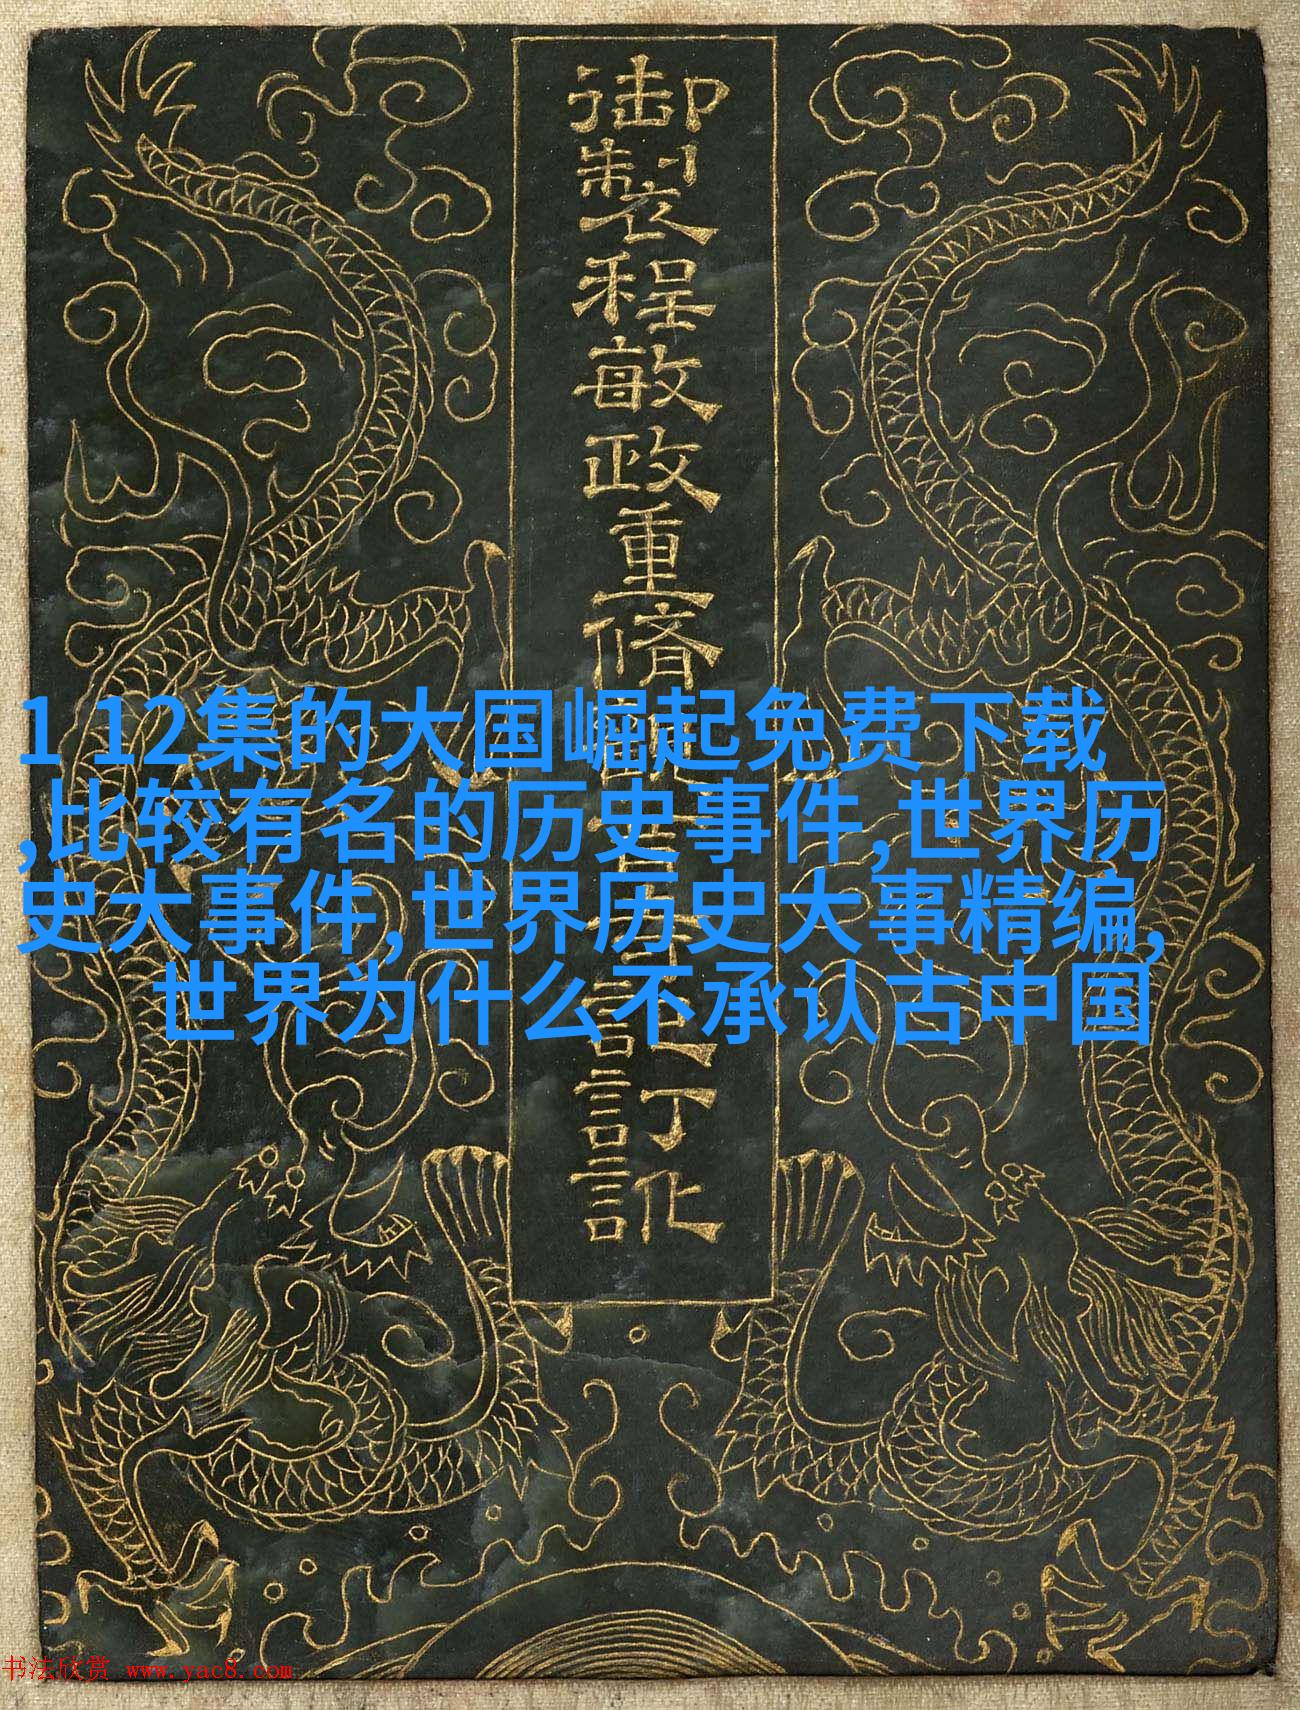 御製程敏政重脩
記訂訛
1 12集的大国崛起免费下载
,比较有名的历史事件,世界历
史大事件,世界历史大事精编,
世界为什么不承认古中国
书法欣赏 www.yac8.com